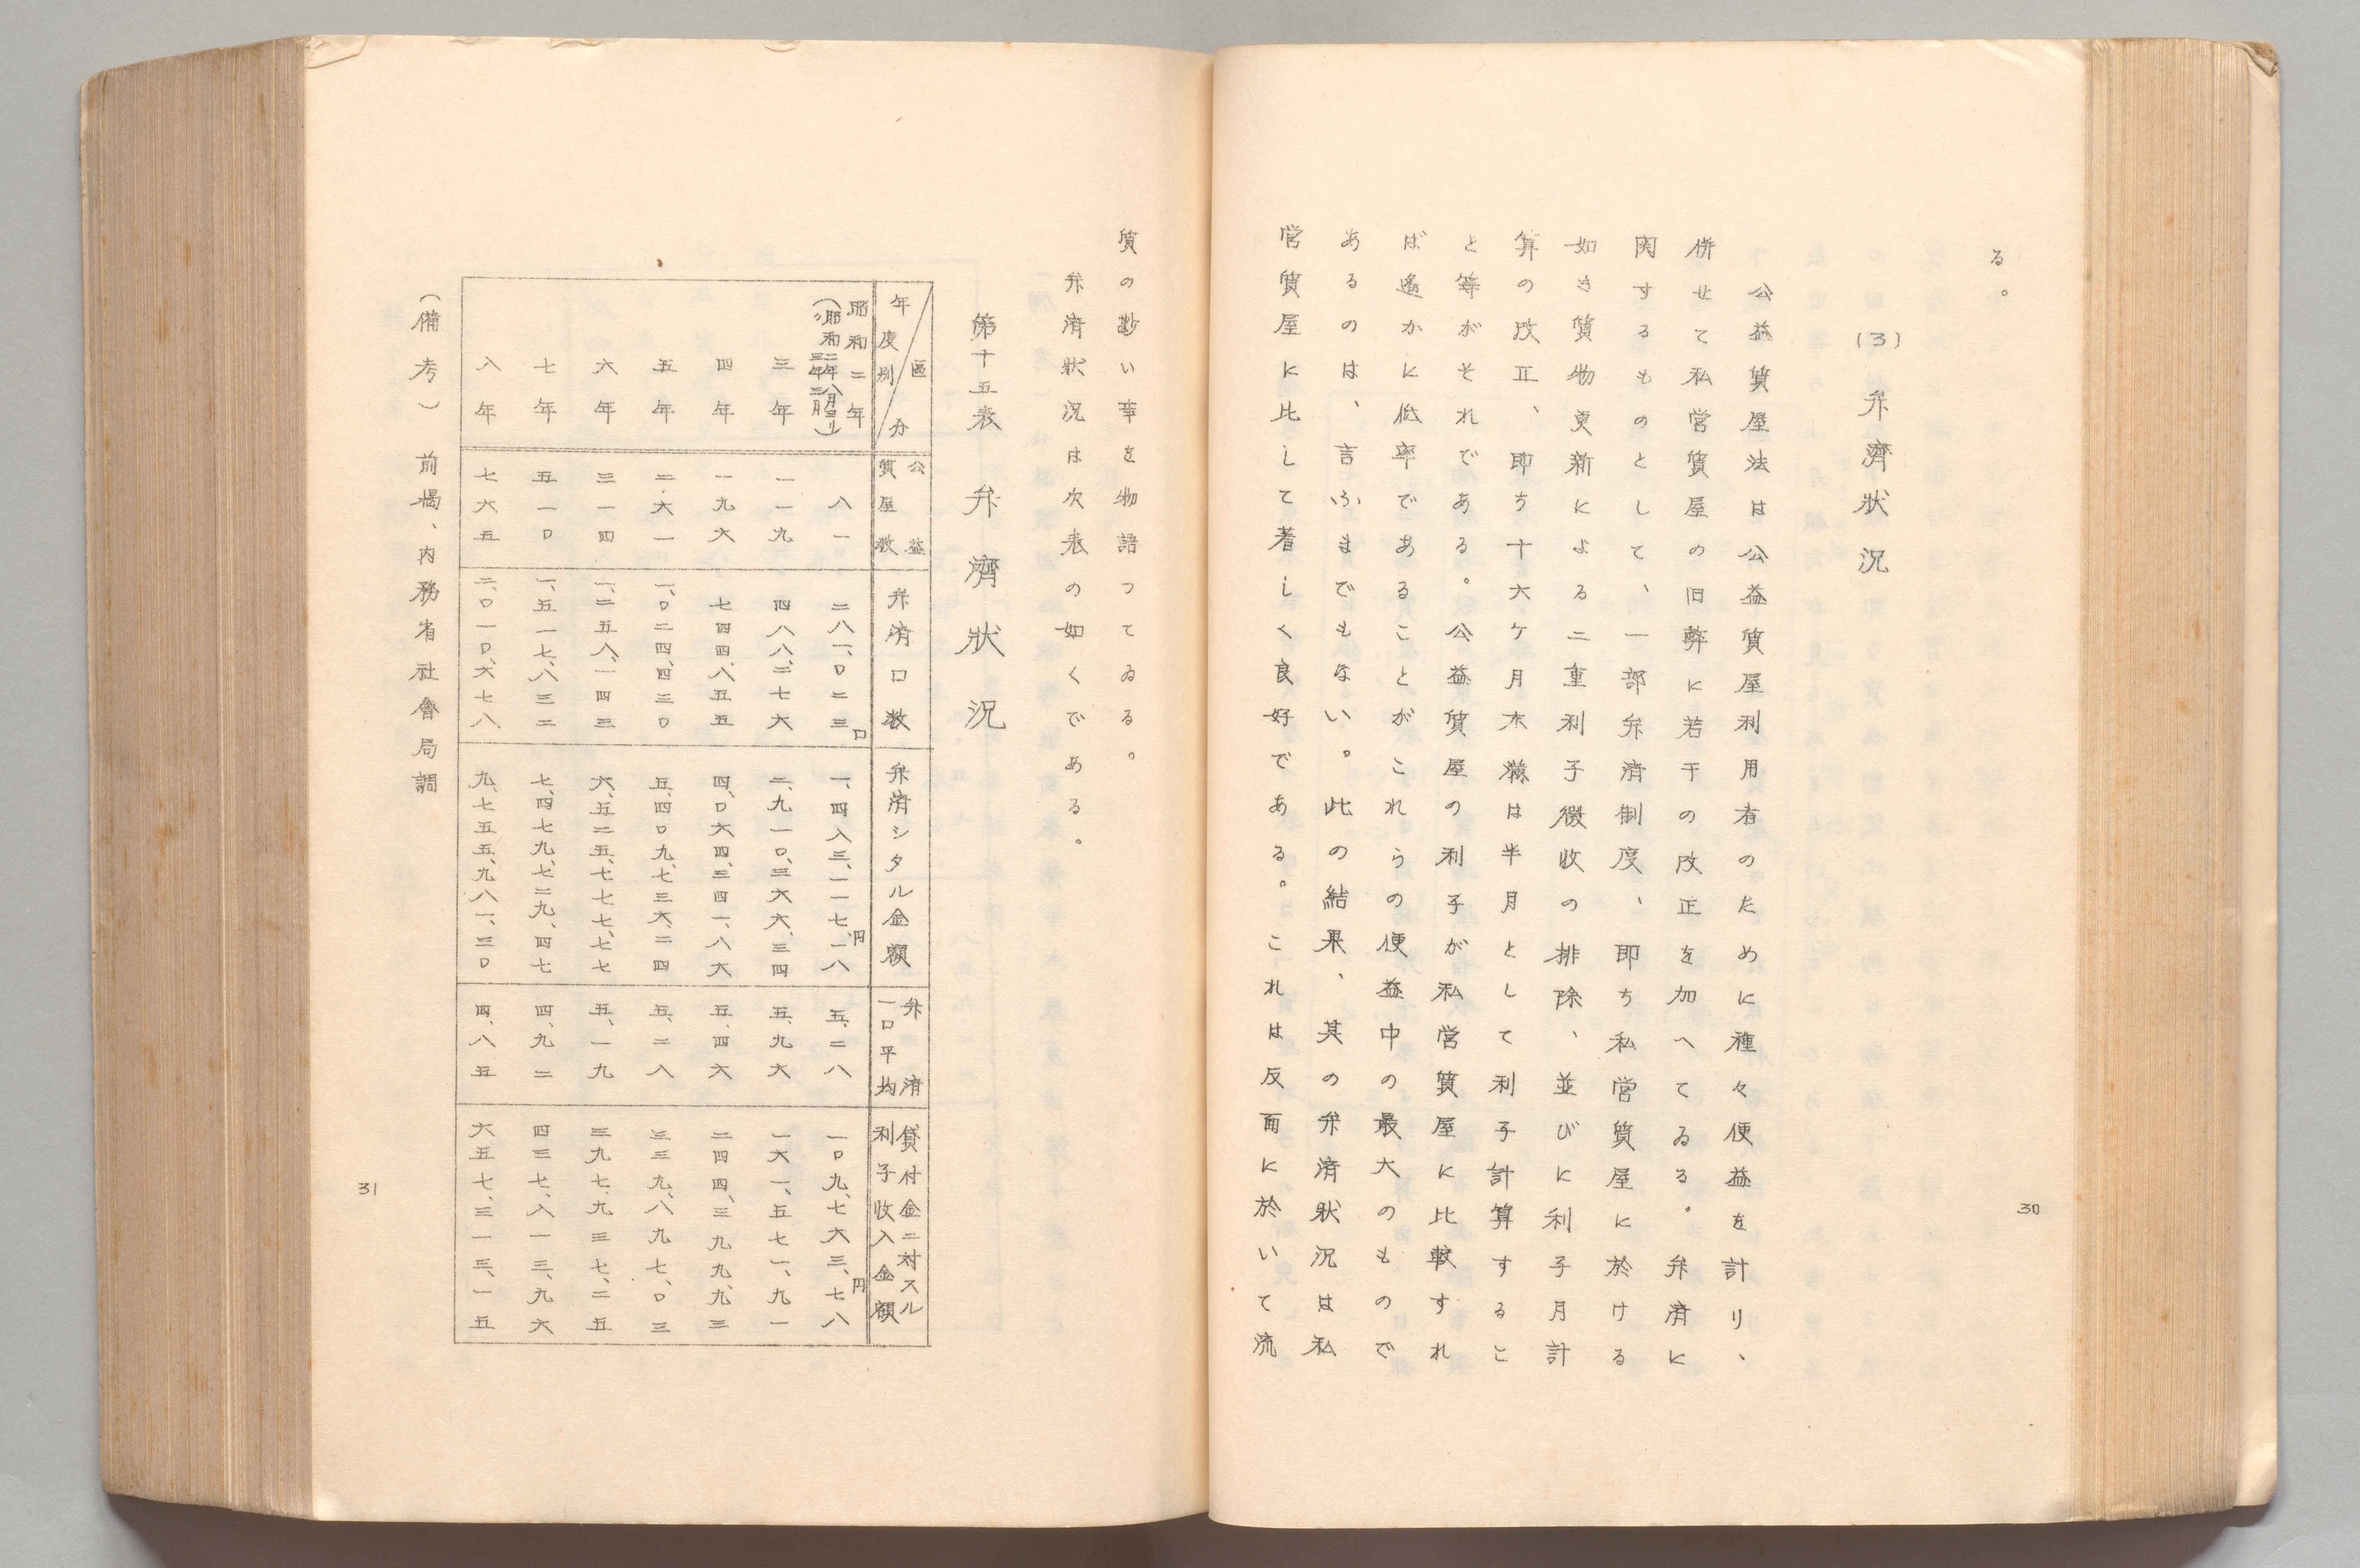 る。
(3) 弁濟狀況
公益質屋法は公益質屋利用者のために種々便益を計り、
併せて私営質屋の旧弊に若干の改正を加へてゐる。弁済に
関するものとして、一部弁済制度、即ち私営質屋に於ける
如き質物更新による二重利子徴收の排除、並びに利子月計
算の改正、即ち十六ケ月未満は半月として利子計算するこ
と等がそれである。公益質屋の利子が私営質屋に比較すれ
ば遙かに低率であることがこれらの便益中の最大のもので
あるのは、言ふまでもない。此の結果、其の弁済狀況は私
営質屋に比して著しく良好である。これは反面に於いて流
30
質の尠い事を物語つてゐる。
弁済狀況は次表の如くである。
第十五表 弁濟狀況
年度別 區分 公益質屋数 弁済口数 弁済シタル金額 弁済一口平均 貸付金ニ対スル利子收入金額
昭和二年(昭和二年八月ヨリ〃三年三月) 八一 二八一、〇二三口 一、四八三、一一七、一八円 五、二八 一〇九、七六三、七八円
三年 一一九 四八八、二七六 二、九一〇、三六六、三四 五、九六 一六一、五七一、九一
四年 一九六 七四四、八五五 四、〇六四、三四一、八六 五、四六 二四四、三九九、九三
五年 二六一 一、〇二四、四三〇 五、四〇九、七三六、二四 五、二八 三三九、八九七、〇三
六年 三一四 一、二五八、一四三 六、五二五、七七七、七七 五、一九 三九七、九三七、二五
七年 五一〇 一、五一七、八三二 七、四七九、七二九、四七 四、九二 四三七、八一三、九六
八年 七六五 二、〇一〇、六七八、 九、七五五、九八一、三〇 四、八五 六五七、三一三、一五
(備考) 前掲、内務省社會局調
31